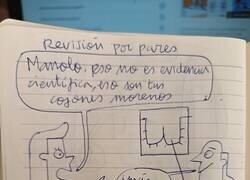 Revisión por pares
Manolo, eso no es evidencia
científica, eso son tus
cojones morenos